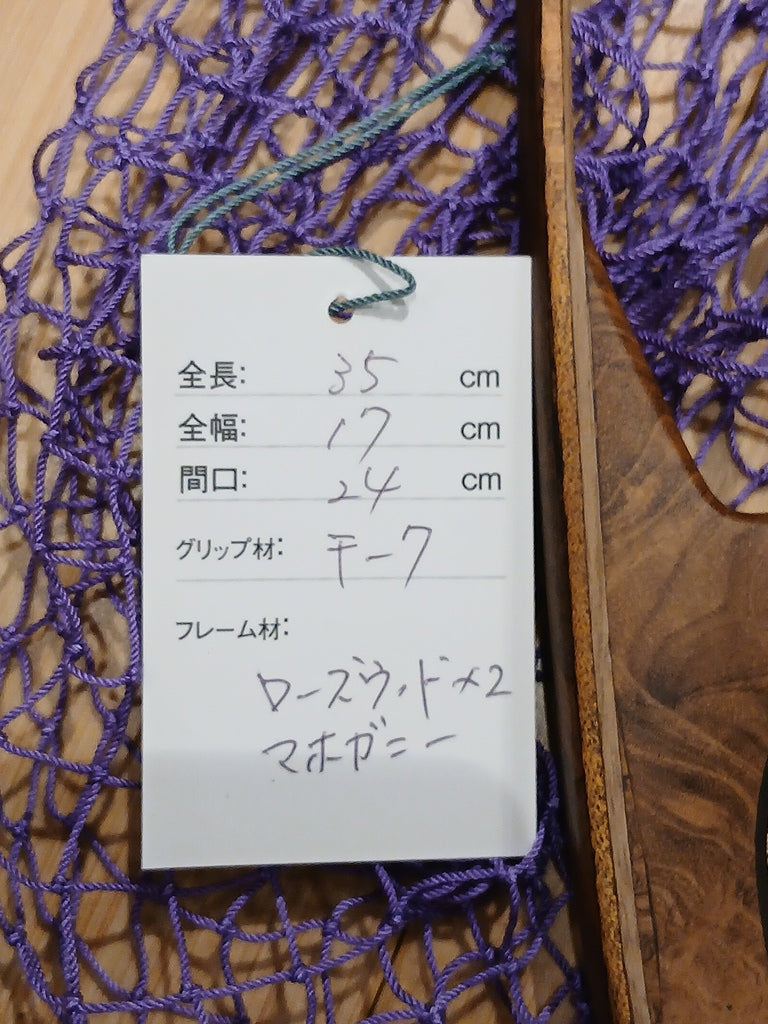 全長: 35 cm
全幅: 17 cm
間口: 24 cm
グリップ材: チーク
フレーム材:
ローズウッド×2
マホガニー